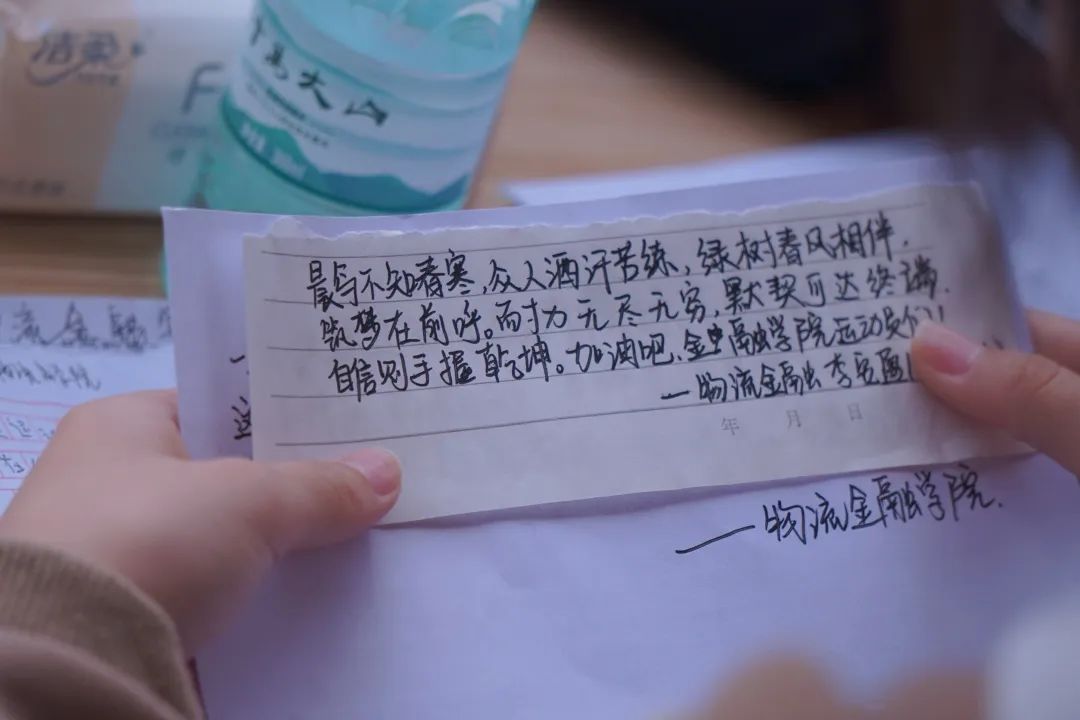 洁柔
F
大山
最与不知春寒,众人洒汗苦练,绿树春风相伴.
筑梦在前呼。而才力无尽无穷,默契可达终端.
自信则手握乾坤。加油吧、金融学院运动员们!
一物流金融 李
年 月 日
一物流金融学院.
流金融